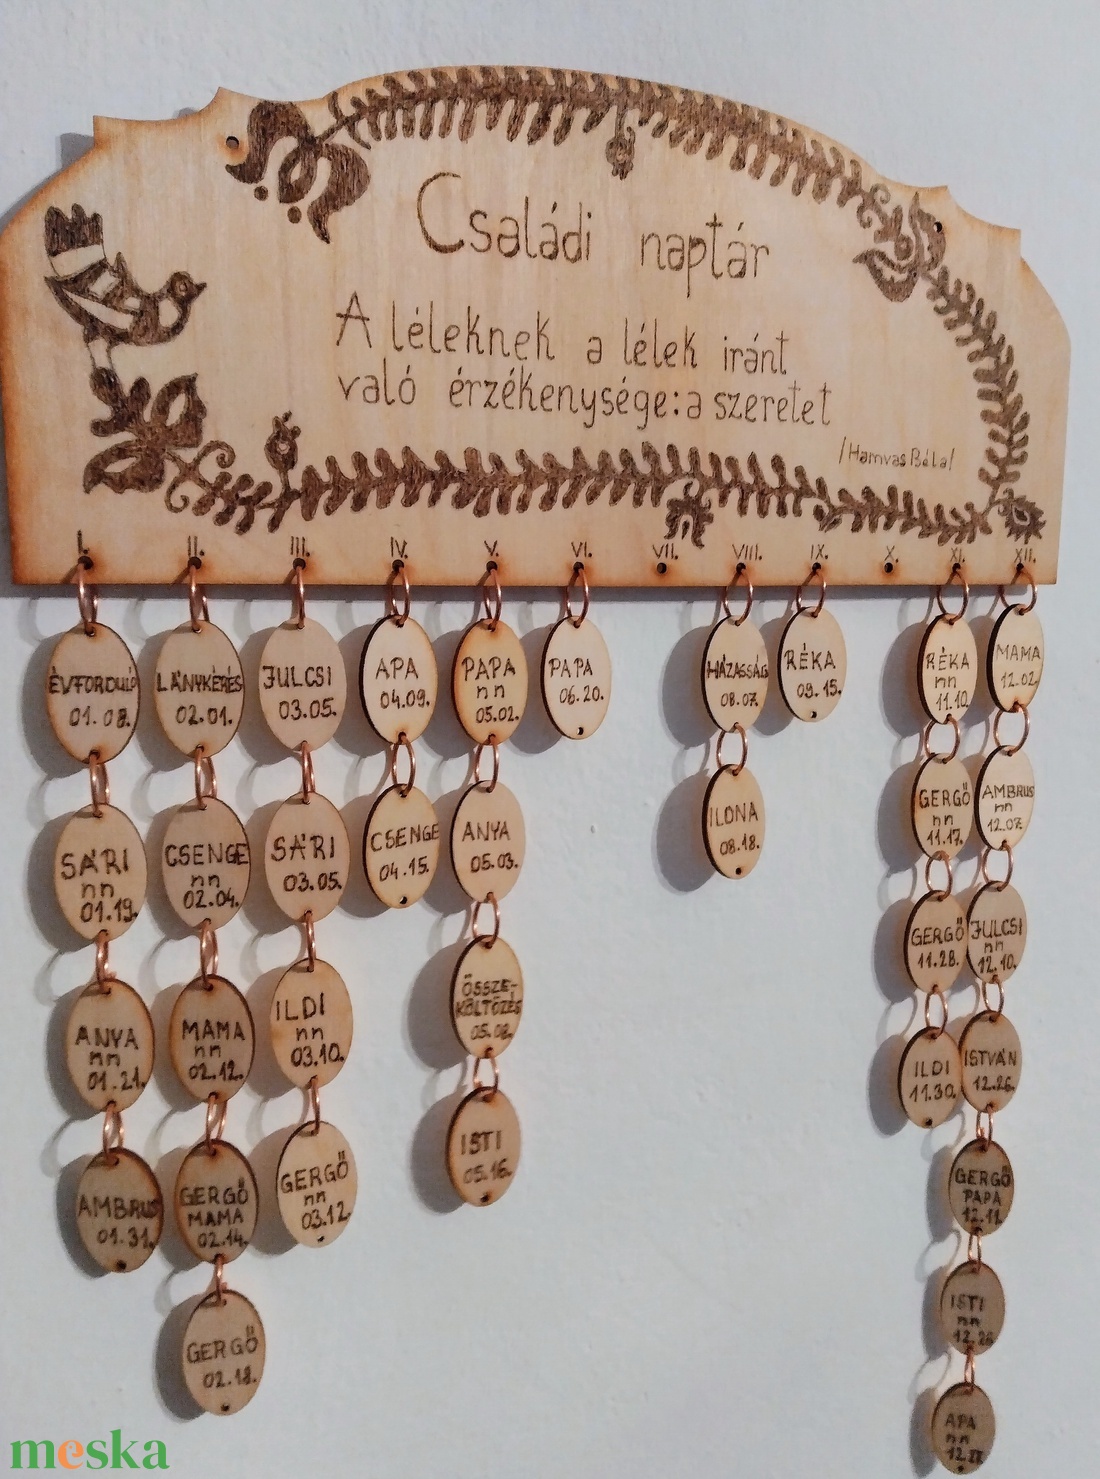 Családi naptár
A léleknek a lélek iránt
való érzékenysége: a szeretet
/Hamvas Béla/
I. II. III. IV. V. VI. VII. VIII. IX. X. XI. XII.
ÉVFORDULÓ
01.08.
SÁRI
nn
01.19.
ANYA
nn
01.21.
AMBRUS
01.31.
LÁNYKÉRÉS
02.01.
CSENGE
nn
02.04.
MAMA
nn
02.12.
GERGŐ
MAMA
02.14.
GERGŐ
02.18.
JULCSI
03.05.
SÁRI
03.05.
ILDI
nn
03.10.
GERGŐ
nn
03.12.
APA
04.09.
CSENGE
04.15.
PAPA
nn
05.02.
ANYA
05.03.
ÖSSZE-
KÖLTÖZÉS
05.08.
ISTI
05.16.
PAPA
06.20.
HÁZASSÁG
08.07.
ILONA
08.18.
RÉKA
09.15.
RÉKA
nn
11.10.
GERGŐ
nn
11.17.
GERGŐ
11.28.
ILDI
11.30.
MAMA
12.02.
AMBRUS
nn
12.07.
JULCSI
nn
12.10.
ISTVÁN
12.26.
GERGŐ
PAPA
12.11.
ISTI
nn
12.26
APA
nn
meska